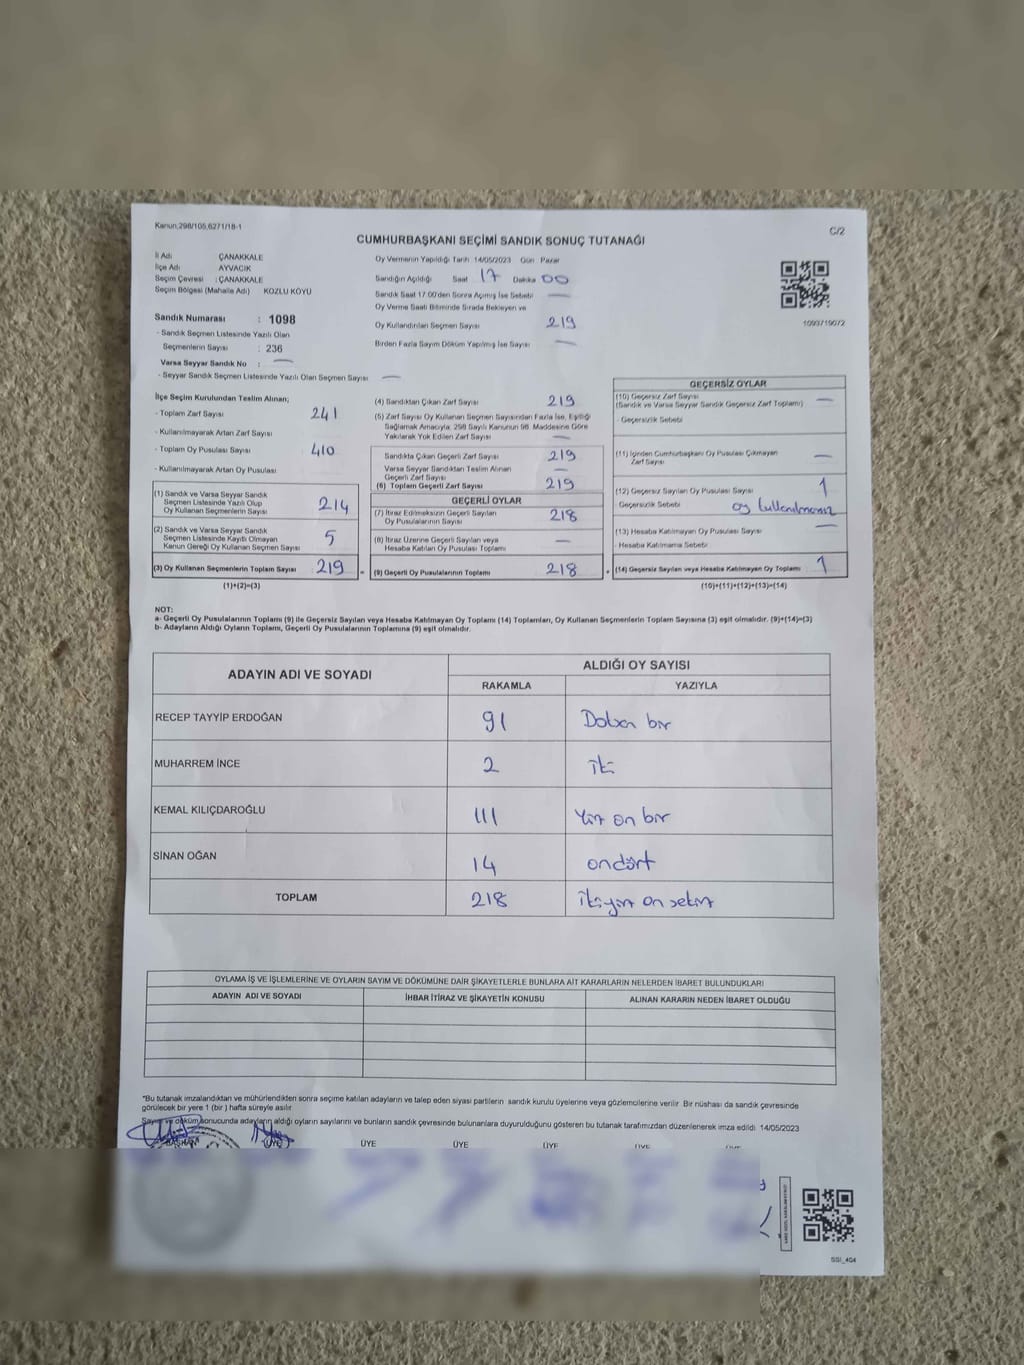 Kanun;298/105,6271/18-1
C/2
CUMHURBAŞKANI SEÇİMİ SANDIK SONUÇ TUTANAĞI
İl Adı ÇANAKKALE
İlçe Adı AYVACIK
Seçim Çevresi : ÇANAKKALE
Seçim Bölgesi (Mahalle Adı) KOZLU KÖYÜ
Sandık Numarası : 1098
- Sandık Seçmen Listesinde Yazılı Olan
Seçmenlerin Sayısı : 236
Varsa Seyyar Sandık No : —
- Seyyar Sandık Seçmen Listesinde Yazılı Olan Seçmen Sayısı —
Oy Vermenin Yapıldığı Tarih 14/05/2023 Gün Pazar
Sandığın Açıldığı Saat 17 Dakika 00
Sandık Saat 17:00'den Sonra Açılmış İse Sebebi —
Oy Verme Saati Bitiminde Sırada Bekleyen ve
Oy Kullandırılan Seçmen Sayısı 219
Birden Fazla Sayım Döküm Yapılmış İse Sayısı —
1093719072
İlçe Seçim Kurulundan Teslim Alınan;
- Toplam Zarf Sayısı 241
- Kullanılmayarak Artan Zarf Sayısı
- Toplam Oy Pusulası Sayısı 410
- Kullanılmayarak Artan Oy Pusulası
(1) Sandık ve Varsa Seyyar Sandık
Seçmen Listesinde Yazılı Olup
Oy Kullanan Seçmenlerin Sayısı 214
(2) Sandık ve Varsa Seyyar Sandık
Seçmen Listesinde Kayıtlı Olmayan
Kanun Gereği Oy Kullanan Seçmen Sayısı 5
(3) Oy Kullanan Seçmenlerin Toplam Sayısı 219
(1)+(2)=(3)
(4) Sandıktan Çıkan Zarf Sayısı 219
(5) Zarf Sayısı Oy Kullanan Seçmen Sayısından Fazla İse, Eşitliği
Sağlamak Amacıyla, 298 Sayılı Kanunun 98. Maddesine Göre
Yakılarak Yok Edilen Zarf Sayısı —
Sandıkta Çıkan Geçerli Zarf Sayısı 219
Varsa Seyyar Sandıktan Teslim Alınan
Geçerli Zarf Sayısı —
(6) Toplam Geçerli Zarf Sayısı 219
GEÇERLİ OYLAR
(7) İtiraz Edilmeksizin Geçerli Sayılan
Oy Pusulalarının Sayısı 218
(8) İtiraz Üzerine Geçerli Sayılan veya
Hesaba Katılan Oy Pusulası Toplamı —
= (9) Geçerli Oy Pusulalarının Toplamı 218
GEÇERSİZ OYLAR
(10) Geçersiz Zarf Sayısı
(Sandık ve Varsa Seyyar Sandık Geçersiz Zarf Toplamı) —
- Geçersizlik Sebebi
(11) İçinden Cumhurbaşkanı Oy Pusulası Çıkmayan
Zarf Sayısı —
(12) Geçersiz Sayılan Oy Pusulası Sayısı 1
Geçersizlik Sebebi oy kullanılmamış
(13) Hesaba Katılmayan Oy Pusulası Sayısı —
- Hesaba Katılmama Sebebi
+ (14) Geçersiz Sayılan veya Hesaba Katılmayan Oy Toplamı 1
(10)+(11)+(12)+(13)=(14)
NOT:
a- Geçerli Oy Pusulalarının Toplamı (9) ile Geçersiz Sayılan veya Hesaba Katılmayan Oy Toplamı (14) Toplamları, Oy Kullanan Seçmenlerin Toplam Sayısına (3) eşit olmalıdır. (9)+(14)=(3)
b- Adayların Aldığı Oyların Toplamı, Geçerli Oy Pusulalarının Toplamına (9) eşit olmalıdır.
ADAYIN ADI VE SOYADI
ALDIĞI OY SAYISI
RAKAMLA YAZIYLA
RECEP TAYYİP ERDOĞAN 91 Doksan bir
MUHARREM İNCE 2 iki
KEMAL KILIÇDAROĞLU 111 Yüz on bir
SİNAN OĞAN 14 ondört
TOPLAM 218 ikiyüz on sekiz
OYLAMA İŞ VE İŞLEMLERİNE VE OYLARIN SAYIM VE DÖKÜMÜNE DAİR ŞİKAYETLERLE BUNLARA AİT KARARLARIN NELERDEN İBARET BULUNDUKLARI
ADAYIN ADI VE SOYADI İHBAR İTİRAZ VE ŞİKAYETİN KONUSU ALINAN KARARIN NEDEN İBARET OLDUĞU
*Bu tutanak imzalandıktan ve mühürlendikten sonra seçime katılan adayların ve talep eden siyasi partilerin sandık kurulu üyelerine veya gözlemcilerine verilir. Bir nüshası da sandık çevresinde
görülecek bir yere 1 (bir) hafta süreyle asılır
Sayım ve döküm sonucunda adayların aldığı oyların sayılarını ve bunların sandık çevresinde bulunanlara duyurulduğunu gösteren bu tutanak tarafımızdan düzenlenerek imza edildi 14/05/2023
BAŞKAN ÜYE ÜYE ÜYE ÜYE ÜYE
SSI_404